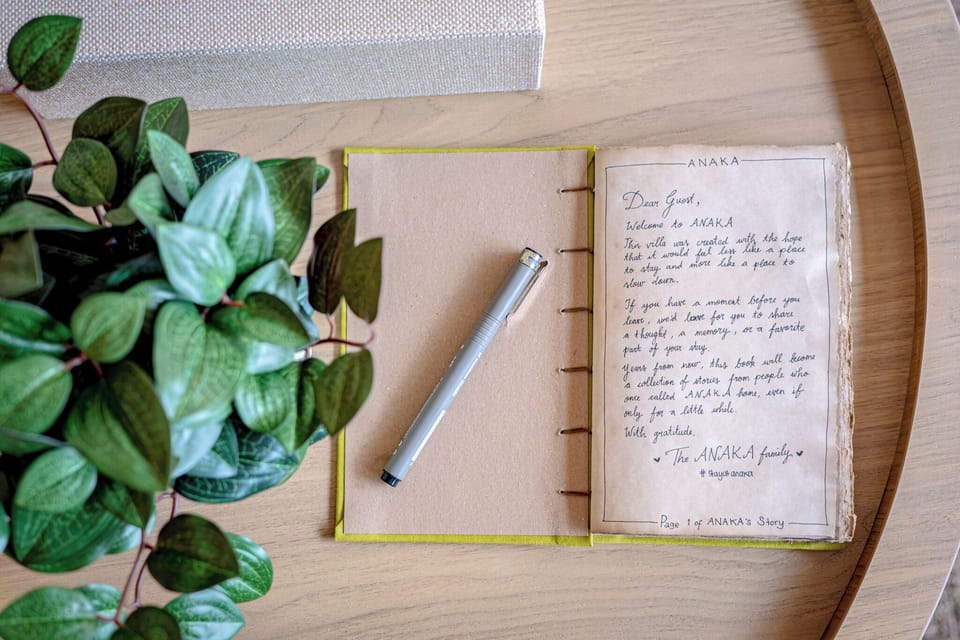 ANAKA
Dear Guest,
Welcome to ANAKA
This villa was created with the hope
that it would feel less like a place
to stay and more like a place to
slow down.
If you have a moment before you
leave, we'd love for you to share
a thought, a memory, or a favorite
part of your stay.
Years from now, this book will become
a collection of stories from people who
once called ANAKA home, even if
only for a little while.
With gratitude,
The ANAKA family
#stayatanaka
Page 1 of ANAKA's Story